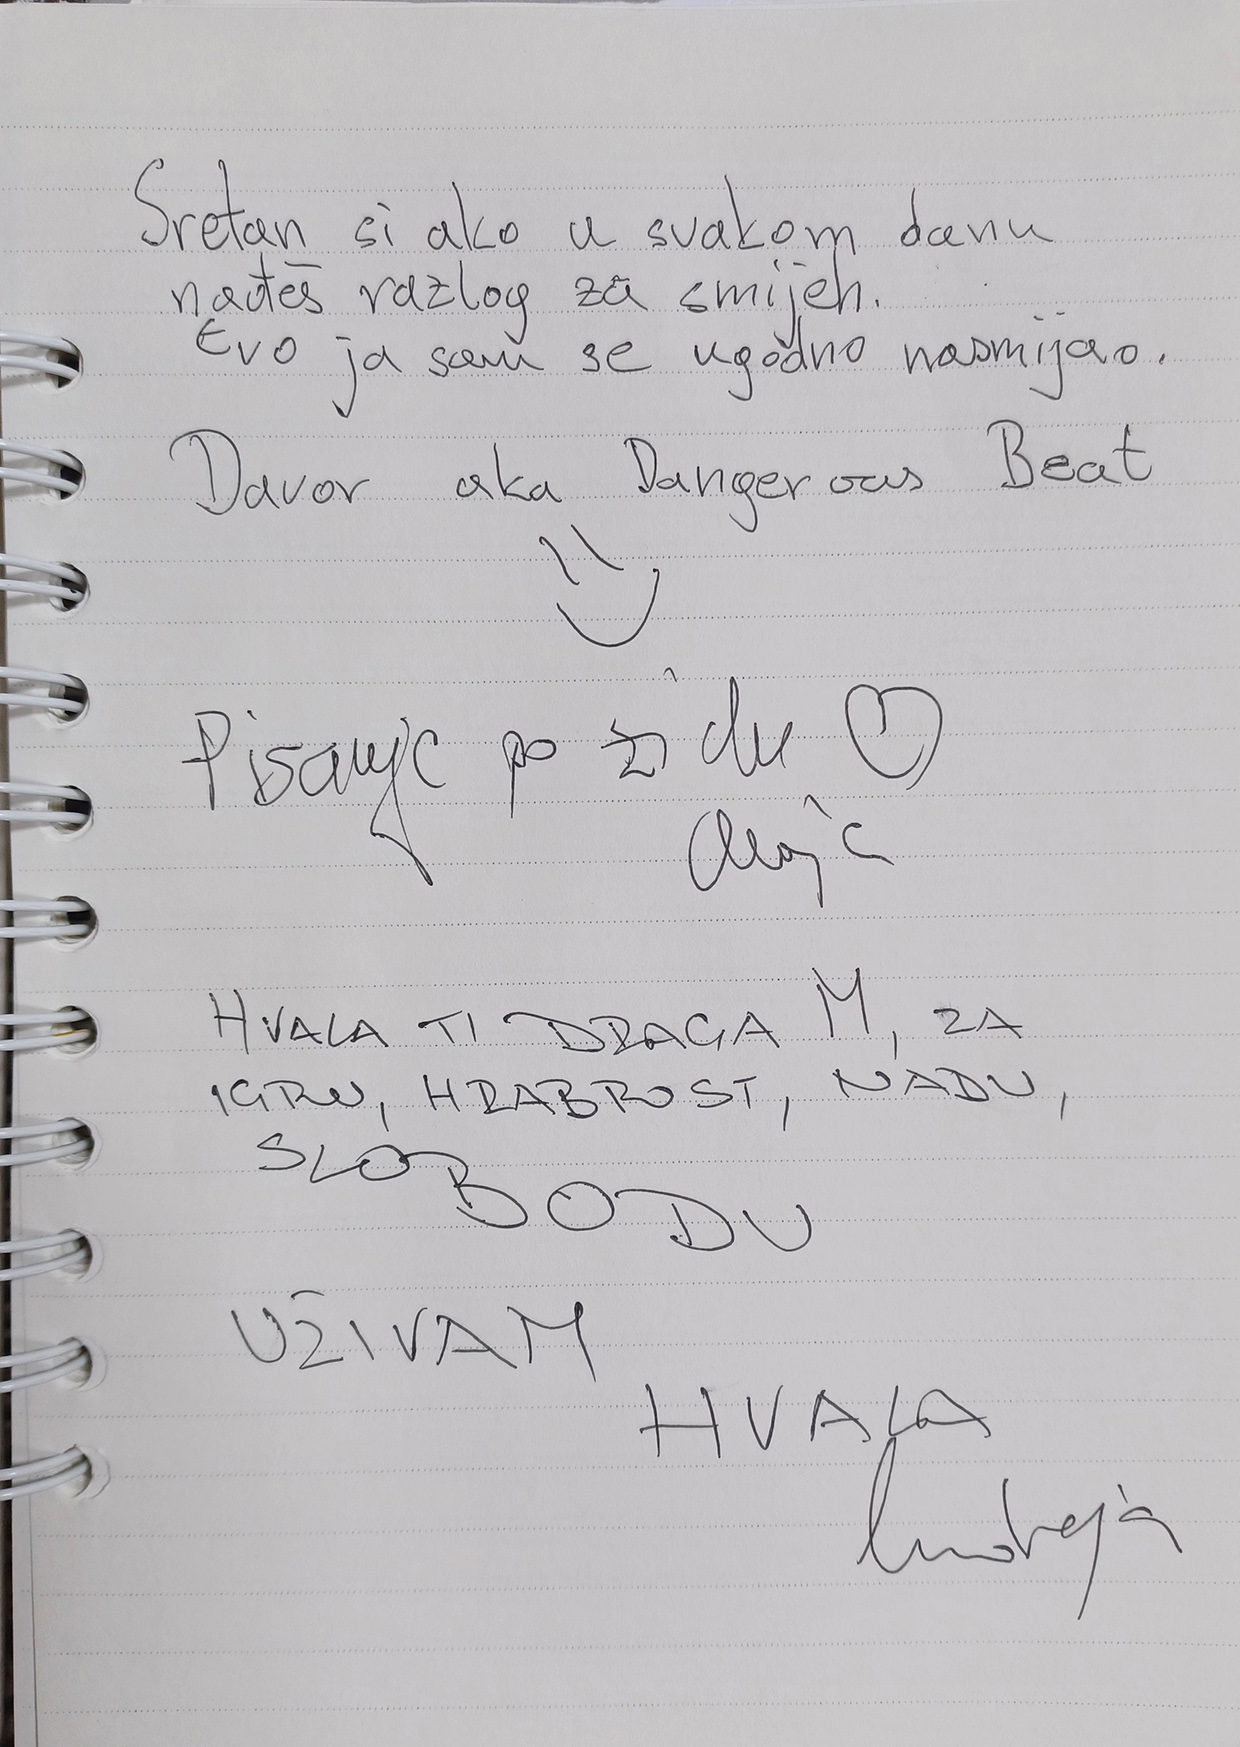 Sretan si ako u svakom danu
nađeš razlog za smijeh.
Evo ja sam se ugodno nasmijao.
Davor aka Dangerous Beat
Pisanje po zidu
HVALA TI DRAGA M, ZA
IGRU, HRABROST, NADU,
SLOBODU
UŽIVAM
HVALA
Andreja